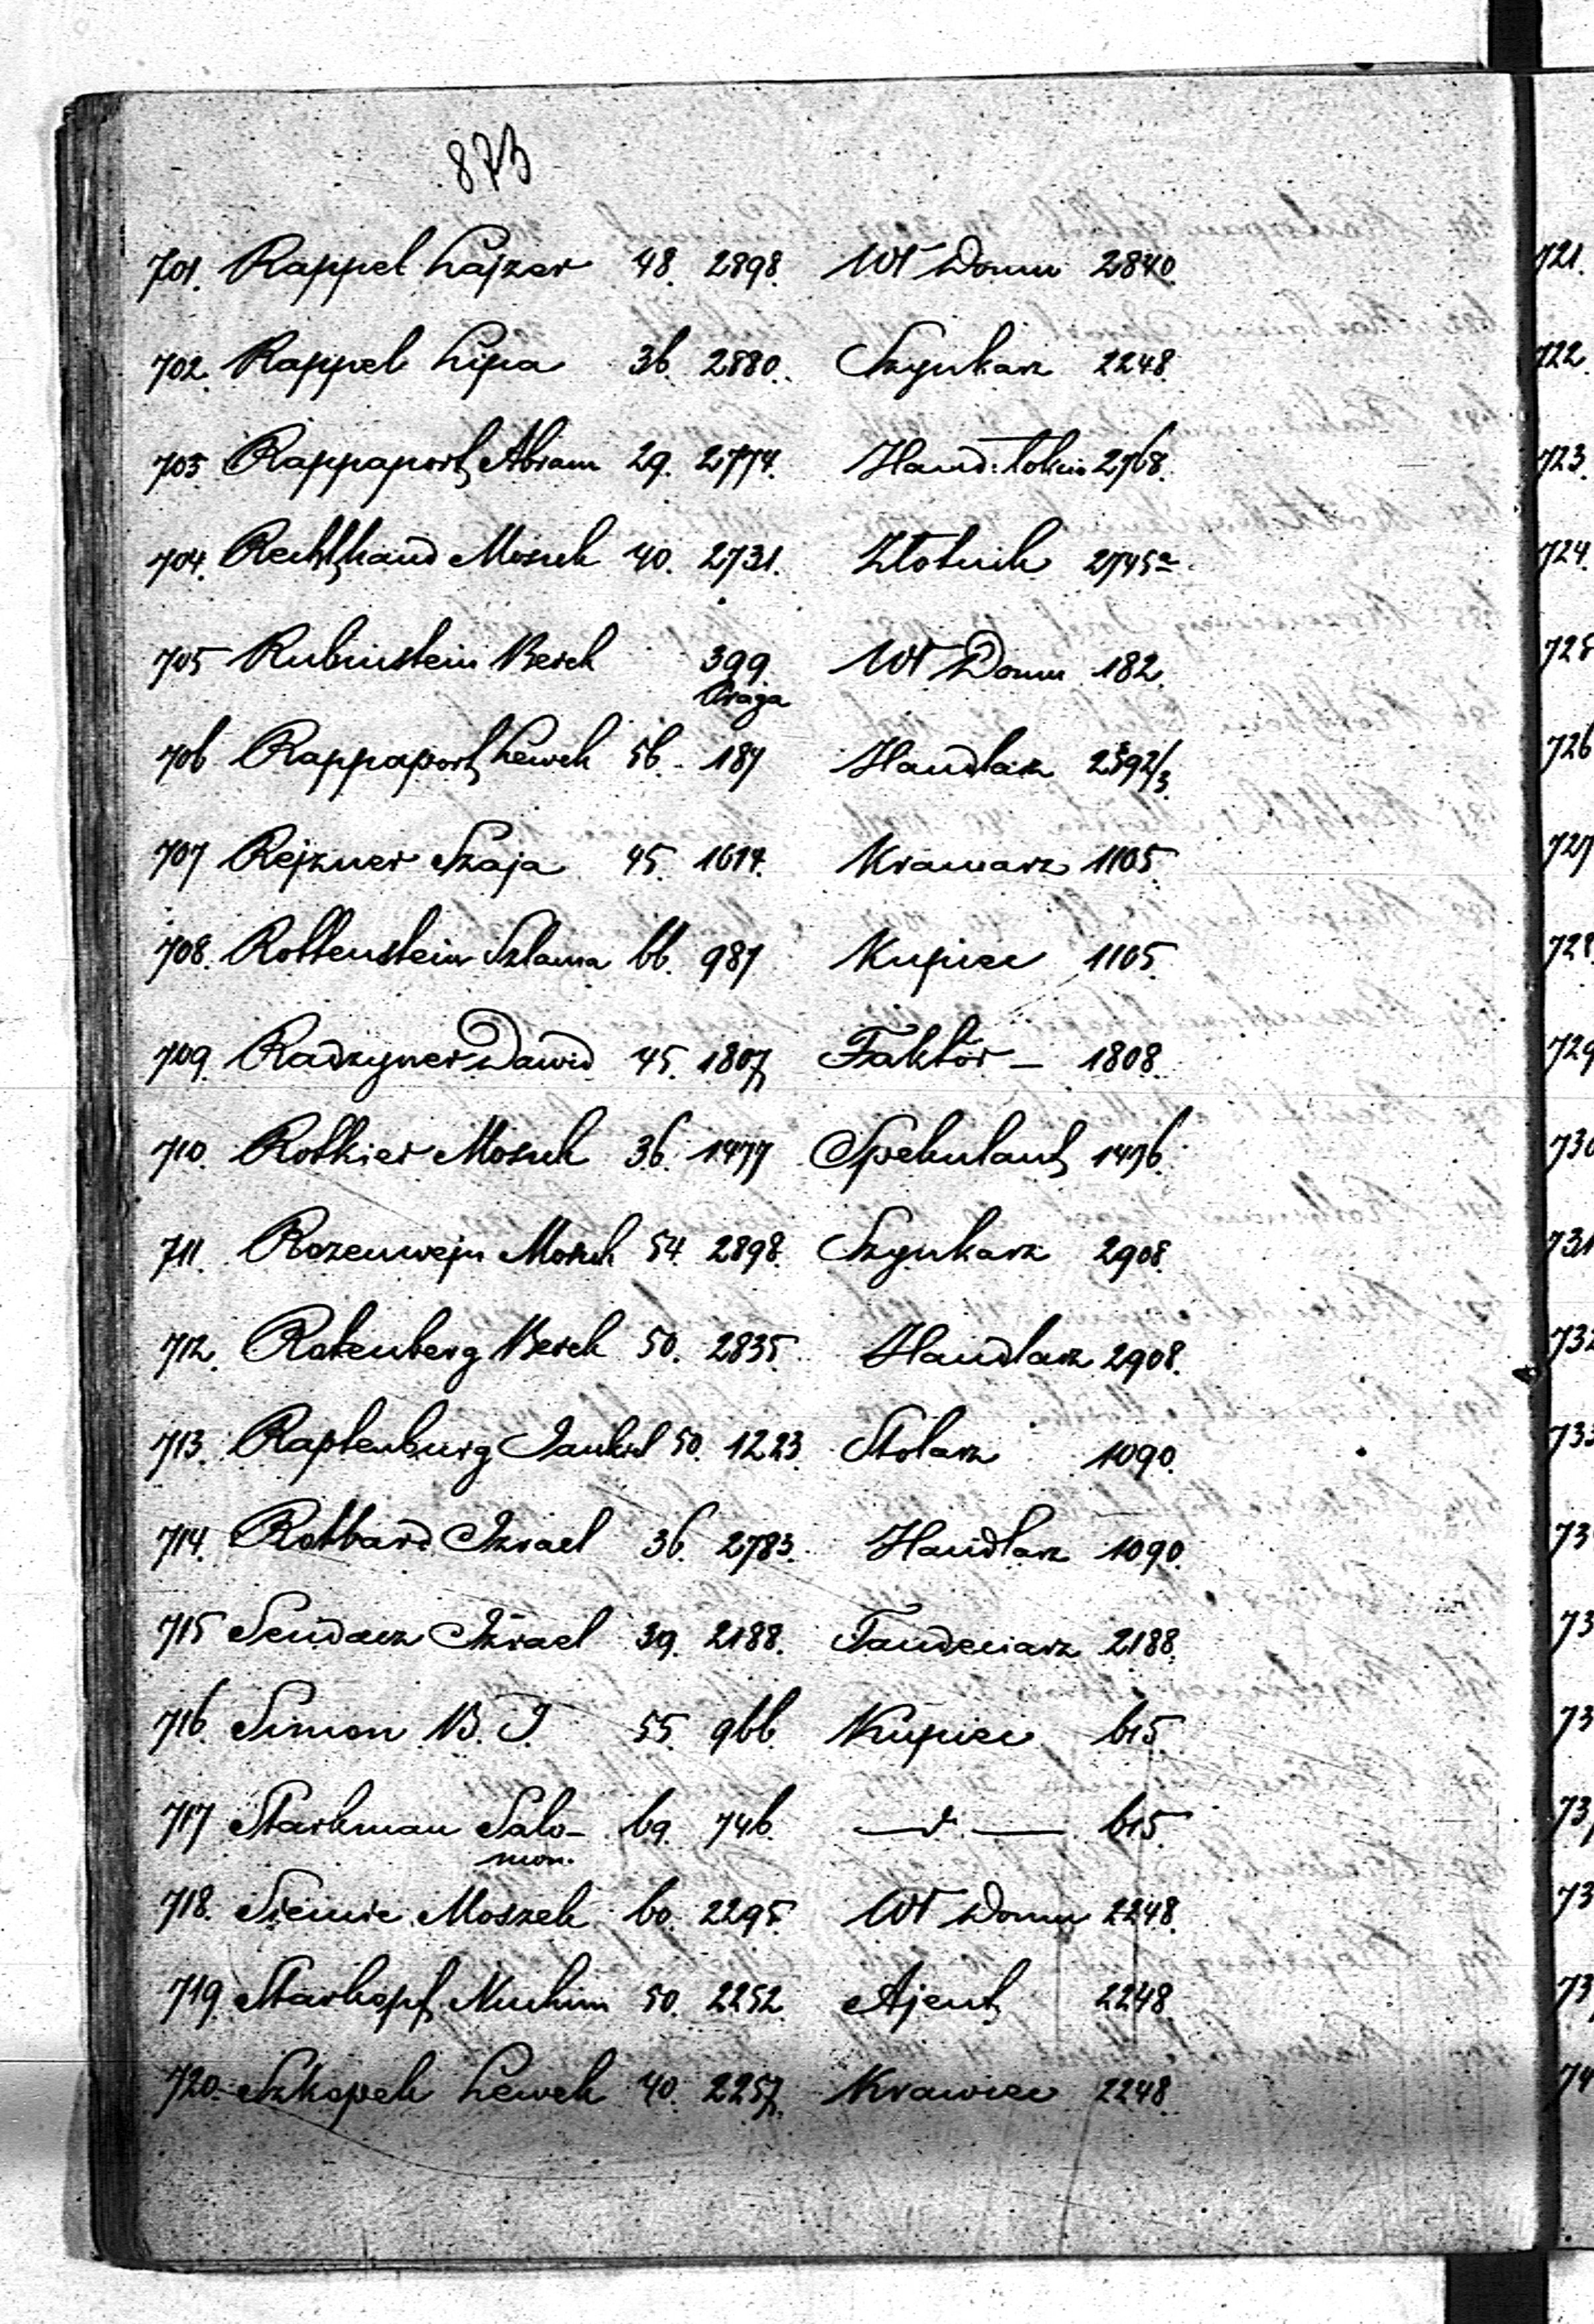 873
701. Rappel Lajzer 48. 2898. Wł Domu 2840
702. Rappel Lipa 36. 2880. Szynkarz 2248.
703 Rappaport Abram 29. 2774. Hand: łokcio 2768.
704. Rechthand Moszek 40. 2731. Złotnik 2745a
705 Rubinstein Berek 399. Wł Domu 182.
Praga
706 Rappaport Lewek 56. 187 Handlarz 2392/3.
707 Rejzner Szaja 45. 1614. Kramarz 1105.
708. Rottenstein Szlama 66. 987 Kupiec 1105.
709. Radzyner Dawid 45. 1807 Faktor — 1808.
710. Rotkier Moszek 36. 1477 Spekulant 1476.
711. Rozenwejn Moszek 54. 2898. Szynkarz 2908.
712. Rotenberg Berek 50. 2835. Handlarz 2908.
713. Raptenburg Jankel 50. 1223. Stolarz 1090.
714. Rotbard Izrael 36. 2783. Handlarz 1090.
715 Sendacz Izrael 39. 2188. Tandeciarz 2188.
716. Simon B. J. 55. 966. Kupiec 615.
717 Starkman Salo- 69. 746. —d— 615.
mon.
718. Siemie Moszek 60. 2295. Wł Domu 2248.
719. Starkopf Nuchim 50. 2252. Ajent 2248
720. Szkopek Lewek 40. 2257. Krawiec 2248.
721.
722.
723.
724.
725
726
727
728.
729
730
731
732
733